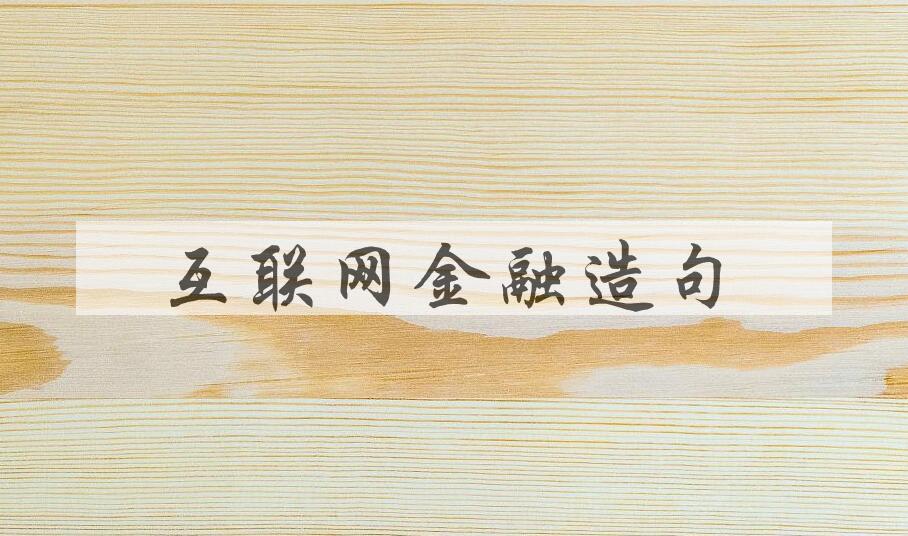 互联网金融造句